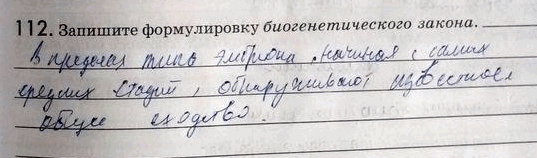 112. Запишите формулировку биогенетического закона.
В пределах типа эмбриона, начиная с самих
средних стадий, обнаруживают известное
общее сходство.